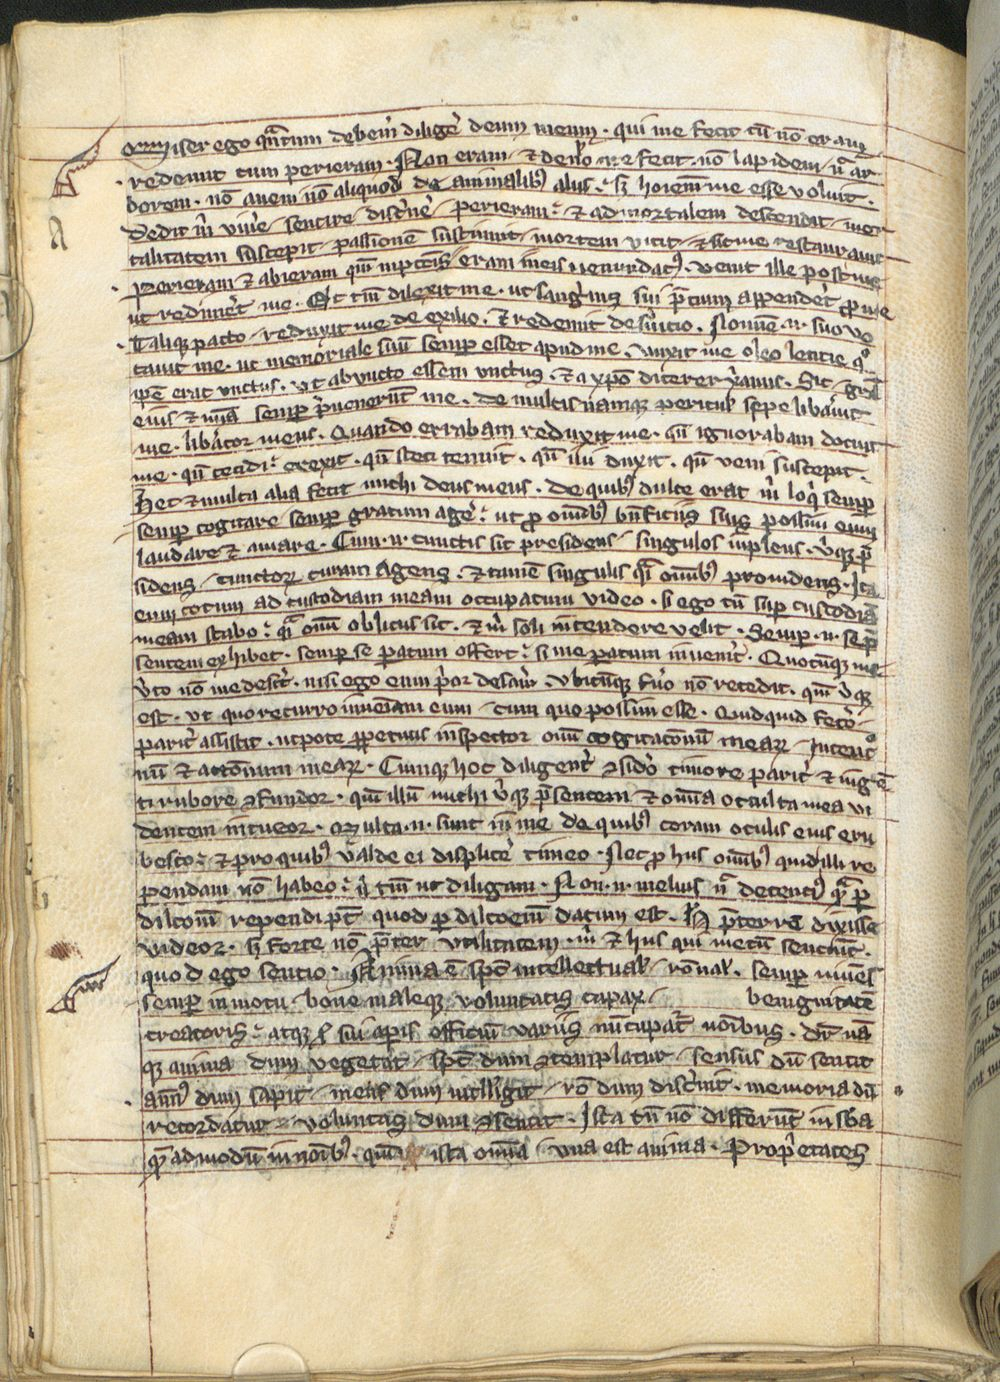 miser ego qantum deberem diligere deum meum. qui me fecit cu no eram.
redemit cum perieram. Non eram. et de nichilo me fecit. no lapidem. n ar
borem. no auem no aliquod de animalib aliis. s hoiem me esse voluit.
Dedit m viuere sentire discnere. perieram. et ad mortalem descendit. mor
talitatem suscepit. passione sustinuit. mortem vicit. et sic me restaurauit
perieram et abieram qm in peccis eram meis venundat. venit ille post me
ut redimeret me. Et tm dilexit me. ut sanguinis sui pcium appenderet pro me
tali q pacto. reduxit me de exilio. et redemit de suitio. Nomine n suo vo
cauit me. ut memoriale suu semper esset apud me. vnxit me oleo leticie qo
ipe erat vnctus. vt ab vncto essem vnctus. et a xpo dicerer xpianus. Sic gra
eius et mia semper puenerut me. de multis namque periculis sepe libauit
me. libator meus. Quando errabam reduxit me. qn ignorabam docuit
me. qn cecidi erexit. qn steti tenuit. qn iui duxit. qn veni suscepit.
Hec et multa alia fecit michi deus meus. de quib dulce erat m loqi semper
semper cogitare semper gratiam agere. ut pro omib bnficiis suis possim eum
laudare et amare. Cum n cunctis sic presidens. singulos implens. vbiq p
sidens. cunctor curam agens. et tame singulis qi omib prouidens. Ita
eum totum ad custodiam meam occupatum video. si ego tn super custodia
meam stabo. qi oim oblitus sit. et m soli intendere velit. Semper n se p
sentem exhibet. semper se paratum offert. si me paratum inuenerit. Quocuq me
vto no me desit. nisi ego eum prior deseram. vbicuq fuero no recedit. qm vbiq
est. vt quo recurro inueniam eum. cum quo possim esse. Quidquid fecero
pariter assistit. utpote perpetuus inspector oim cogitacionum mear. intencio
nu et actionum mear. Cumque hoc diligenter considero timore pariter et inge
ti rubore confundor. qm illum michi vbiq psentem et omia occulta mea vi
dentem intueor. Multa n sunt in me de quib coram oculis eius eru
besco. et pro quib valde ei displicere timeo. Nec pro his omib quid illi re
pendam no habeo. n tm ut diligam. Non n melius n decenti qa per
dilcom rependi pt quod per dilcoem datum est. Hec pterire dixisse
videor. s forte no preter vtilitatem. m et hiis qui mecu senciunt.
quod ego sentio. Anima e spc intellectualis. ronalis. semper viuens
semper in motu. bone maleque voluntatis capax. benignitate
creatoris. atque sui operis officium variis nuncupatr noibus. dr na
que anima dum vegetat. spc dum contemplatur. sensus du sentit
anims dum sapit. mens dum intelligit. ro dum discnit. memoria du
recordatur. voluntas dum consentit. Ista tn no differunt in sba
qe admodu in noib. qm ista omia vna est anima. Proprietates